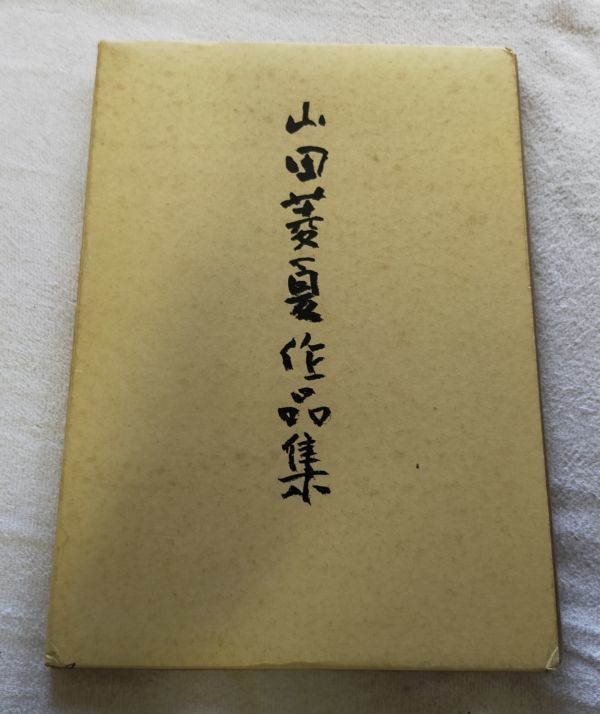 山田菱夏作品集